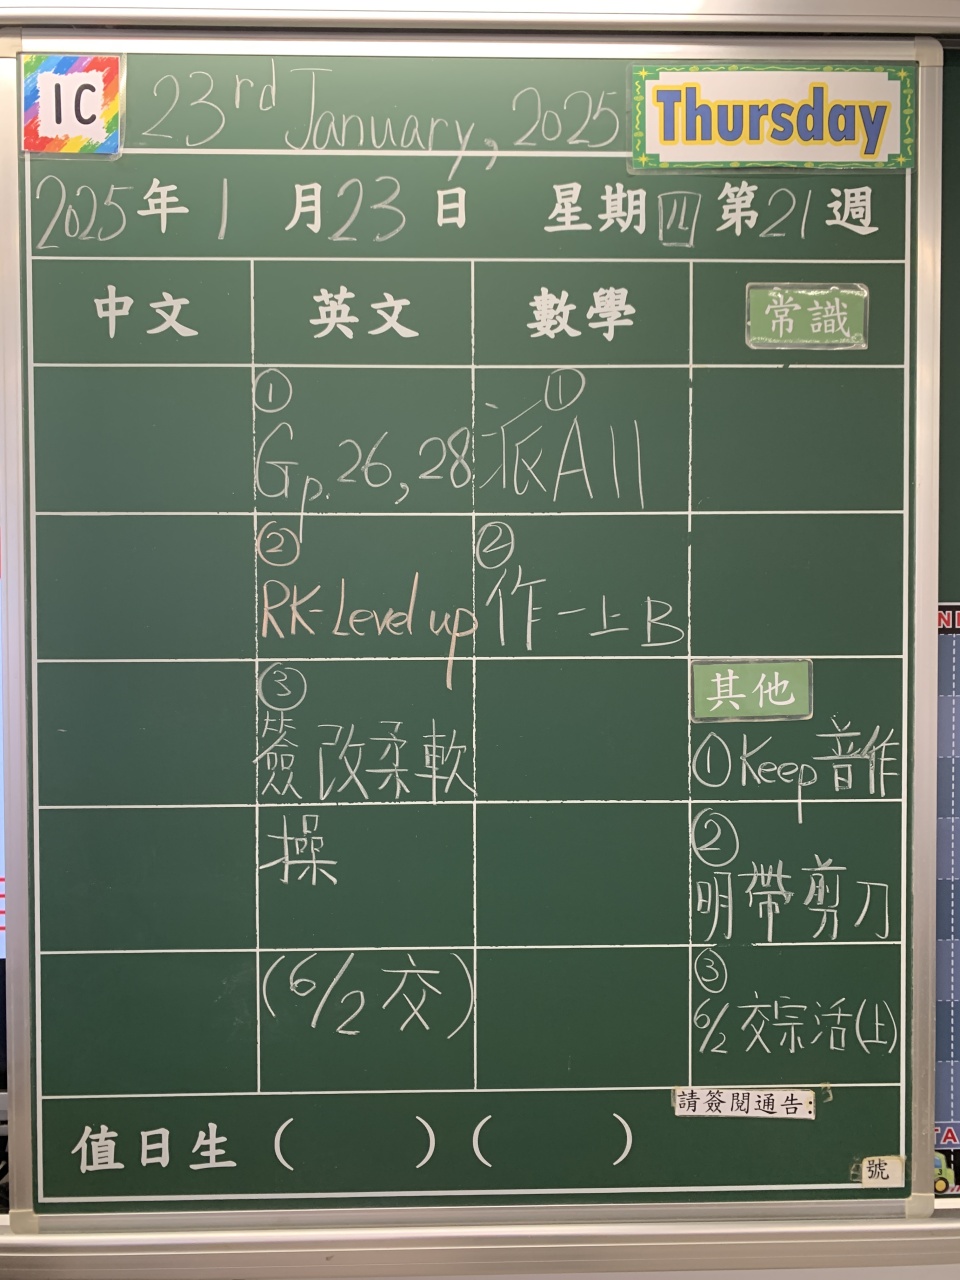 1C 23rd January, 2025 Thursday
2025年1月23日 星期四 第21週
中文 英文 數學 常識
① ①
Gp. 26, 28 派A11
② ②
RK-Level up 作一上B
③ 其他
簽改柔軟 ①Keep音作
操 ②
明帶剪刀
(6/2 交) ③
6/2 交宗活(上)
請簽閱通告:
值日生 ( ) ( )
號